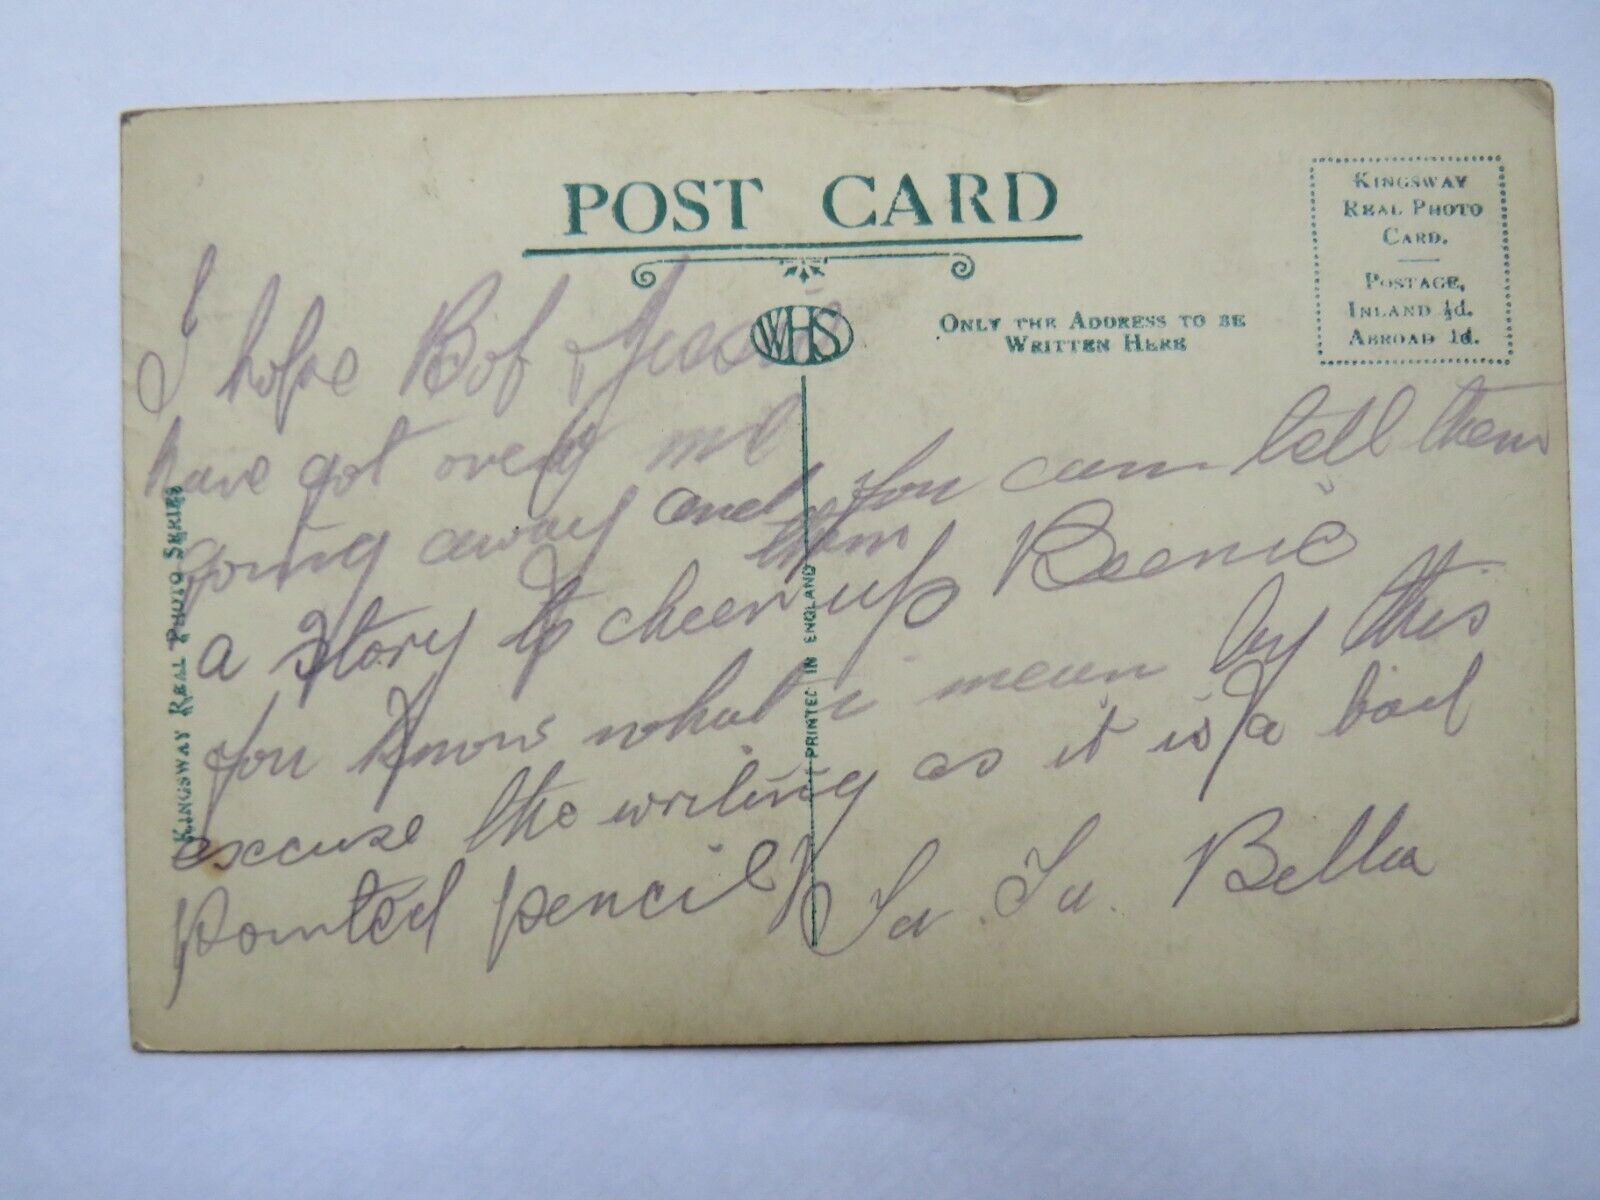 POST CARD
WHS
ONLY THE ADDRESS TO BE
WRITTEN HERE
KINGSWAY
REAL PHOTO
CARD.
POSTAGE,
INLAND ½d.
ABROAD 1d.
KINGSWAY REAL PHOTO SERIES
PRINTED IN ENGLAND
I hope Bob & Jessie
have got over me
going away and you can tell them
a story to cheer them up
you know what i mean by this
excuse the writing as it is a bad
pointed pencil Ta. Ta. Bella